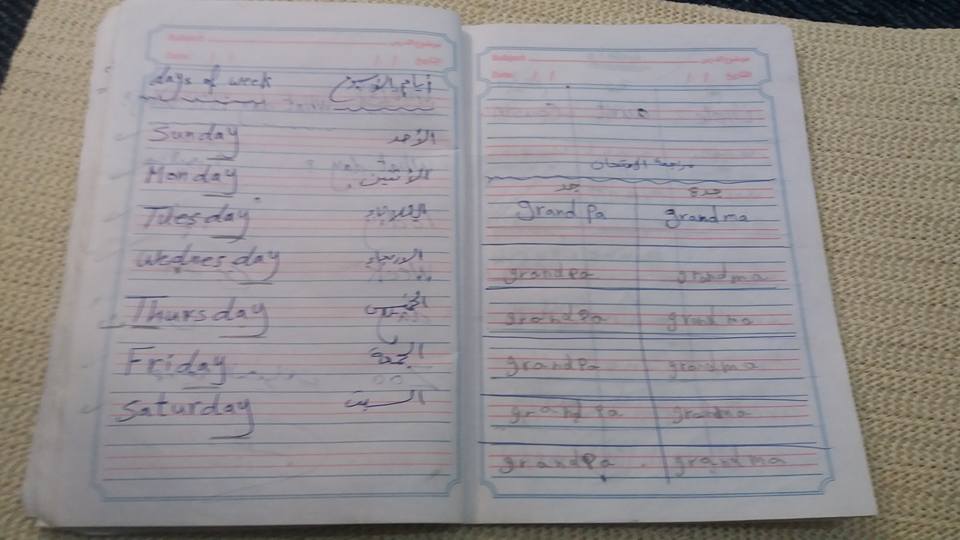 days of week أيام الأسبوع
Sunday الأحد
Monday الأثنين
Tuesday الثلاثاء
Wednesday الاربعاء
Thursday الخميس
Friday الجمعة
Saturday السبت
Subject: موضوع الدرس
Date: / / التاريخ
مراجعة الامتحان
جد جدة
grandPa grandma
grandPa grandma
grandPa grandma
grandPa grandma
grandPa grandma
grandPa grandma